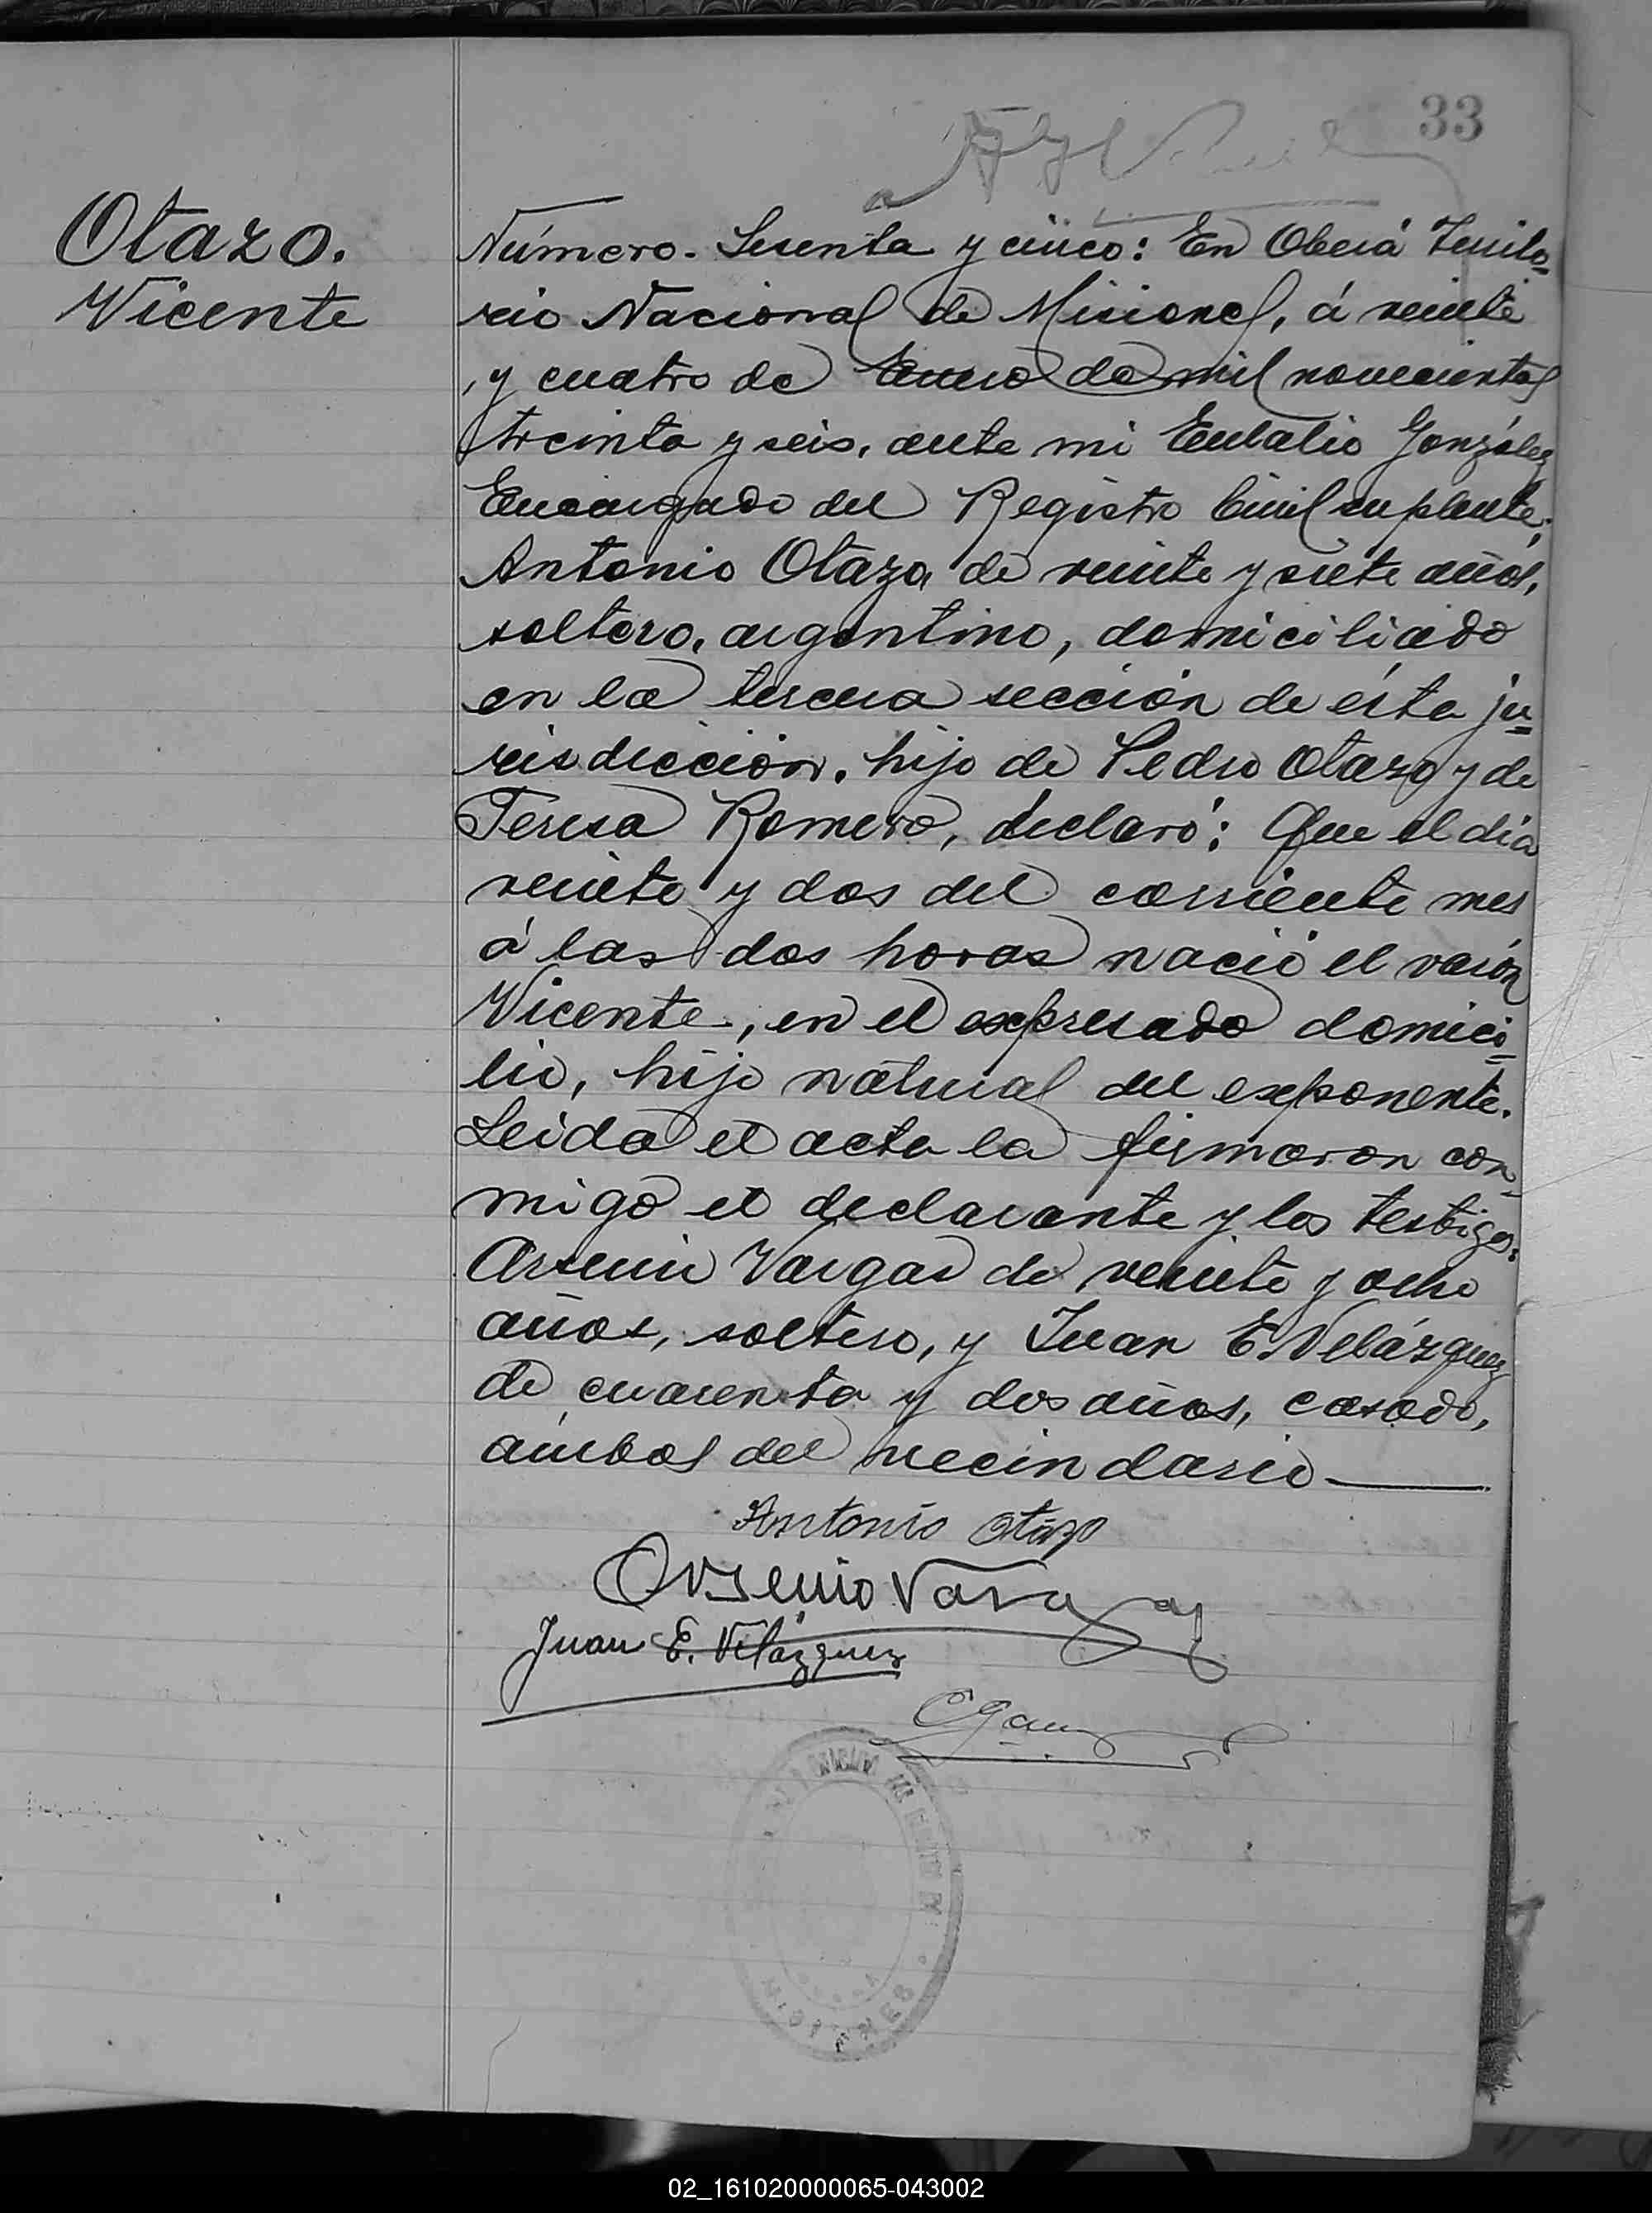 33
Otazo.
Vicente
Número. Sesenta y cinco: En Oberá Territo=
rio Nacional de Misiones, á veinte
y cuatro de Enero de mil novecientos
treinta y seis, ante mi Eulalio González
Encargado del Registro Civil suplente,
Antonio Otazo, de veinte y siete años,
soltero, argentino, domiciliado
en la tercera sección de ésta ju=
risdicción, hijo de Pedro Otazo y de
Teresa Romero, declaró: Que el día
veinte y dos del corriente mes
á las dos horas nació el varón
Vicente, en el expresado domici=
lio, hijo natural del exponente.
Leida el acta la firmaron con-
migo el declarante y los testigos:
Arsenio Vargas de veinte y ocho
años, soltero, y Juan E. Velázquez
de cuarenta y dos años, casado,
ambos del vecindario
Antonio Otazo
Arsenio Vargas
Juan E. Velázquez
MISIONES
02_161020000065-043002